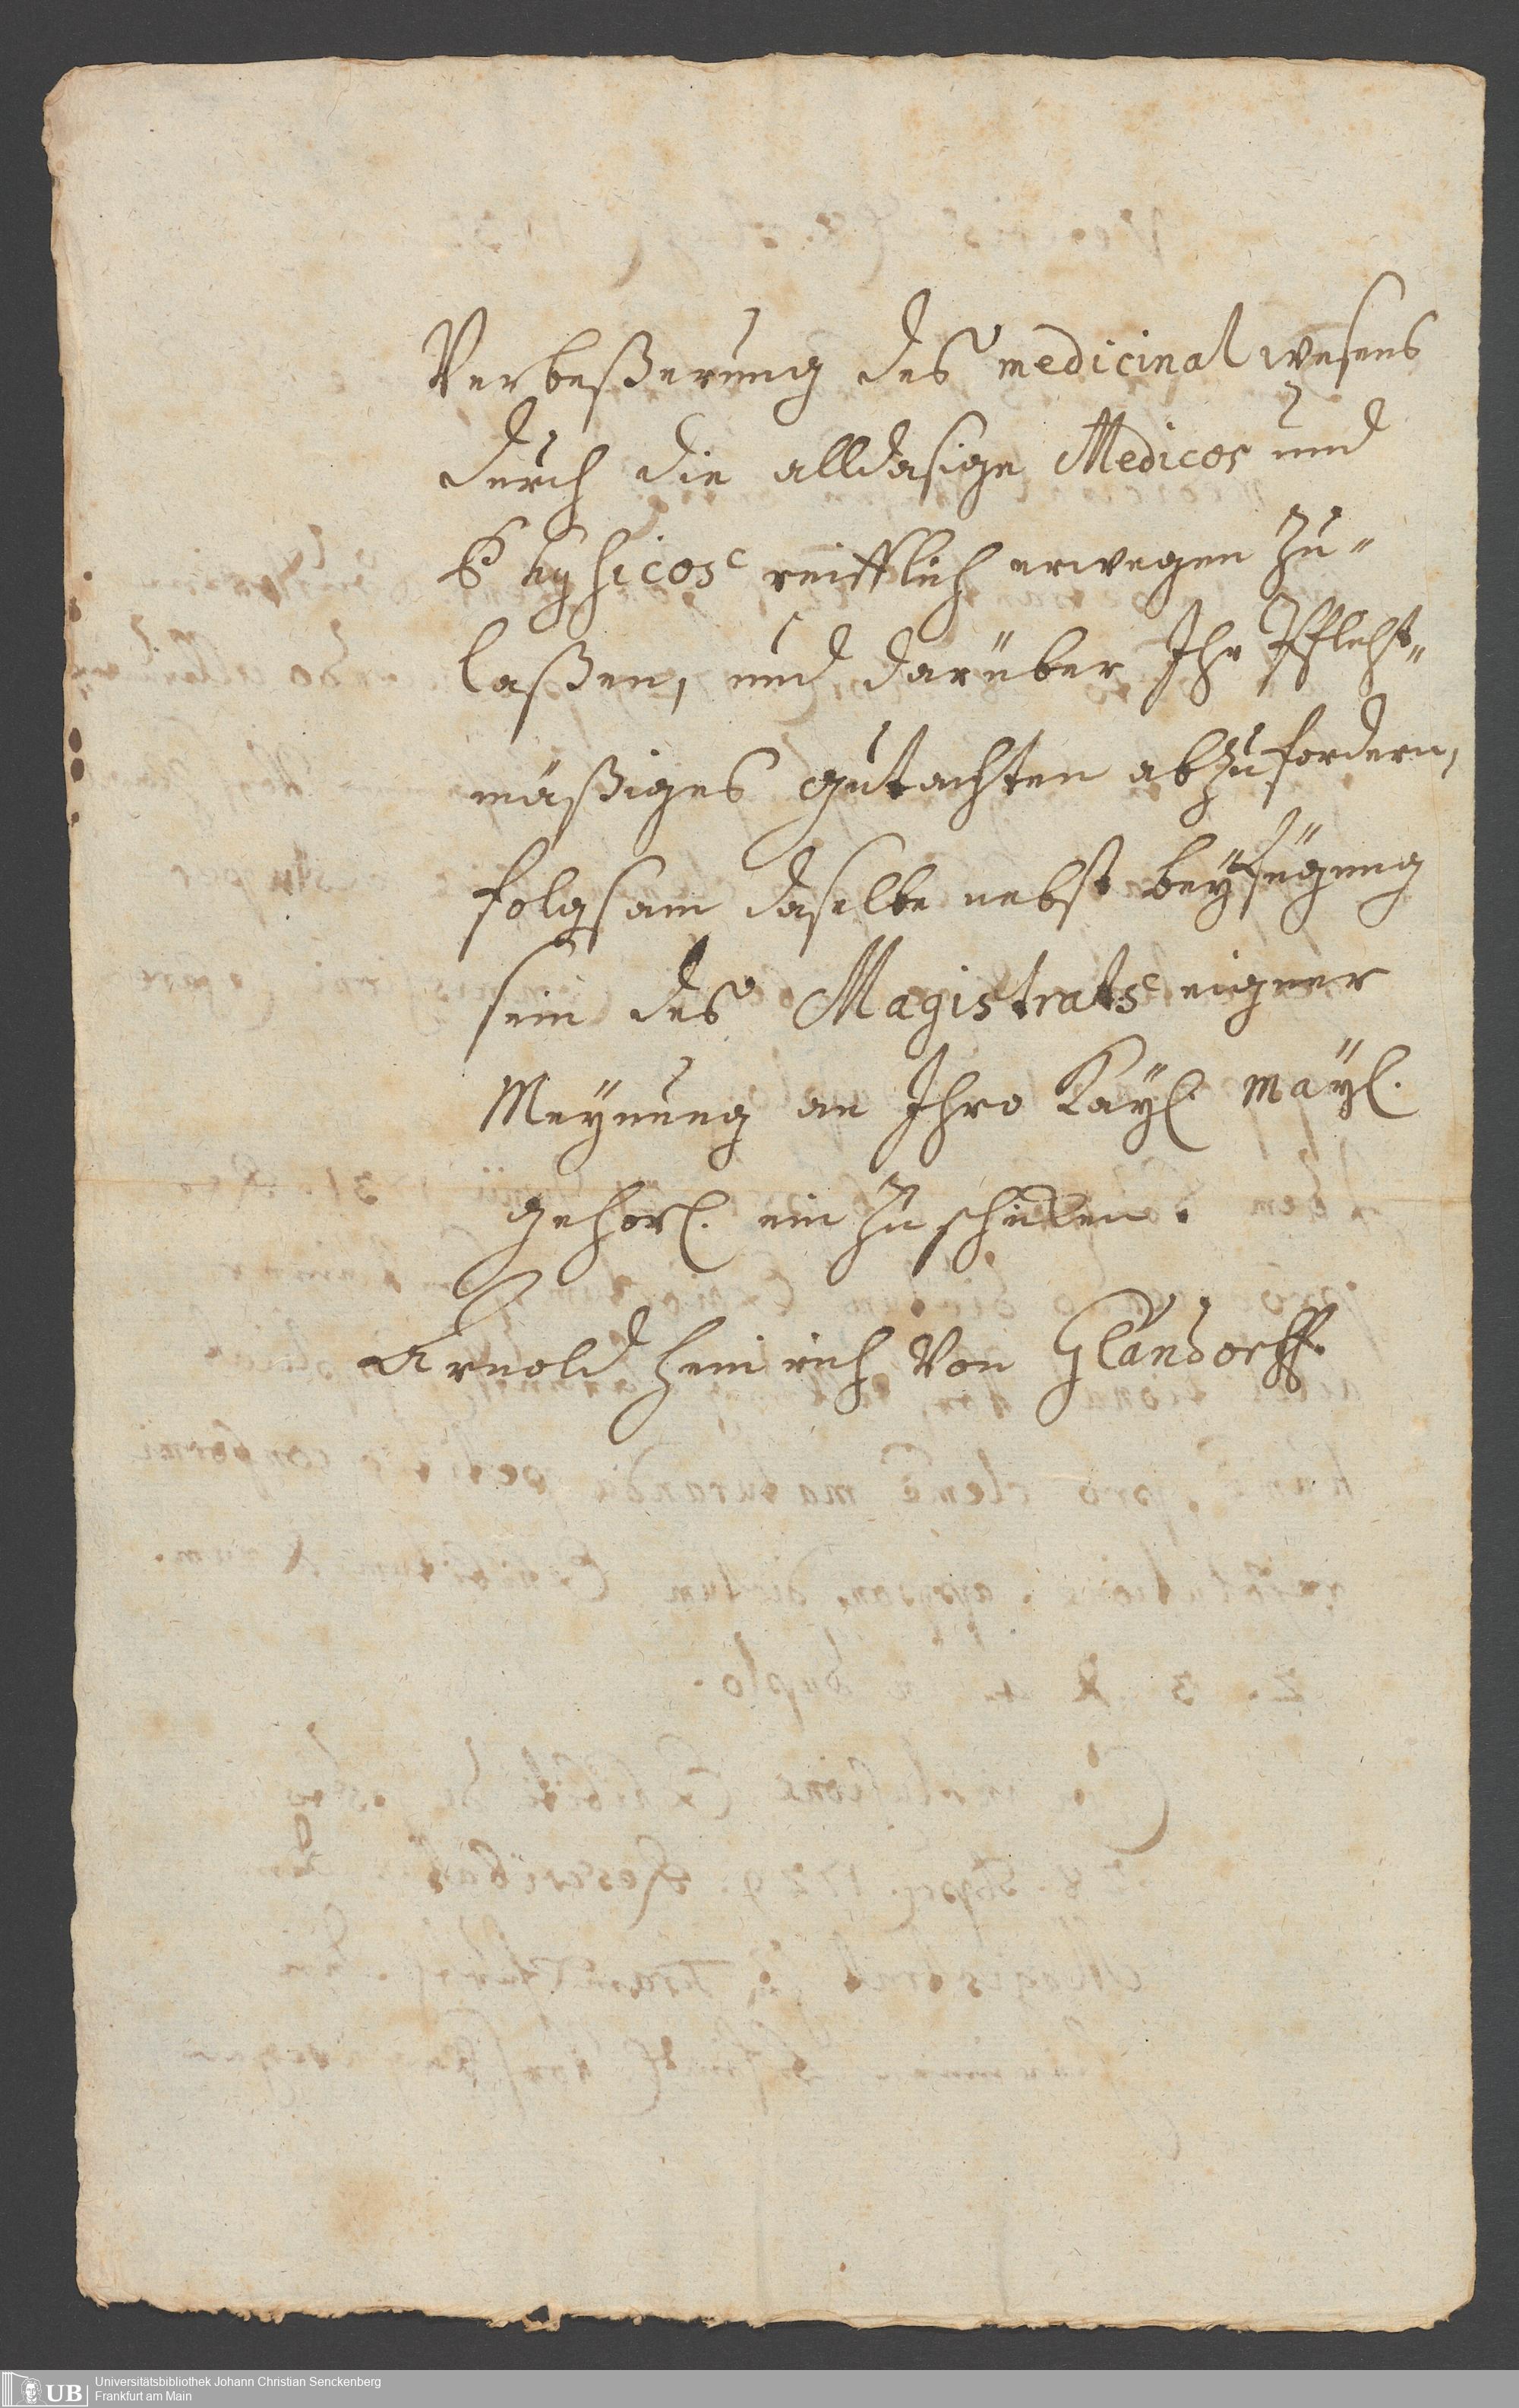 Verbeßerung des medicinal wesens
durch die alldasige Medicos und
Physicos reifflich erwegen zu-
laßen, und darüber Ihr Pflicht-
mäßiges gutachten abzufordern,
folgsam daselbe nebst beyfügung
sein des Magistrats eigner
Meynung an Ihro Kayl. Mayl.
gehorl. ein zu schicken.
Arnold Heinrich Von Glandorff.
UB Universitätsbibliothek Johann Christian Senckenberg
Frankfurt am Main